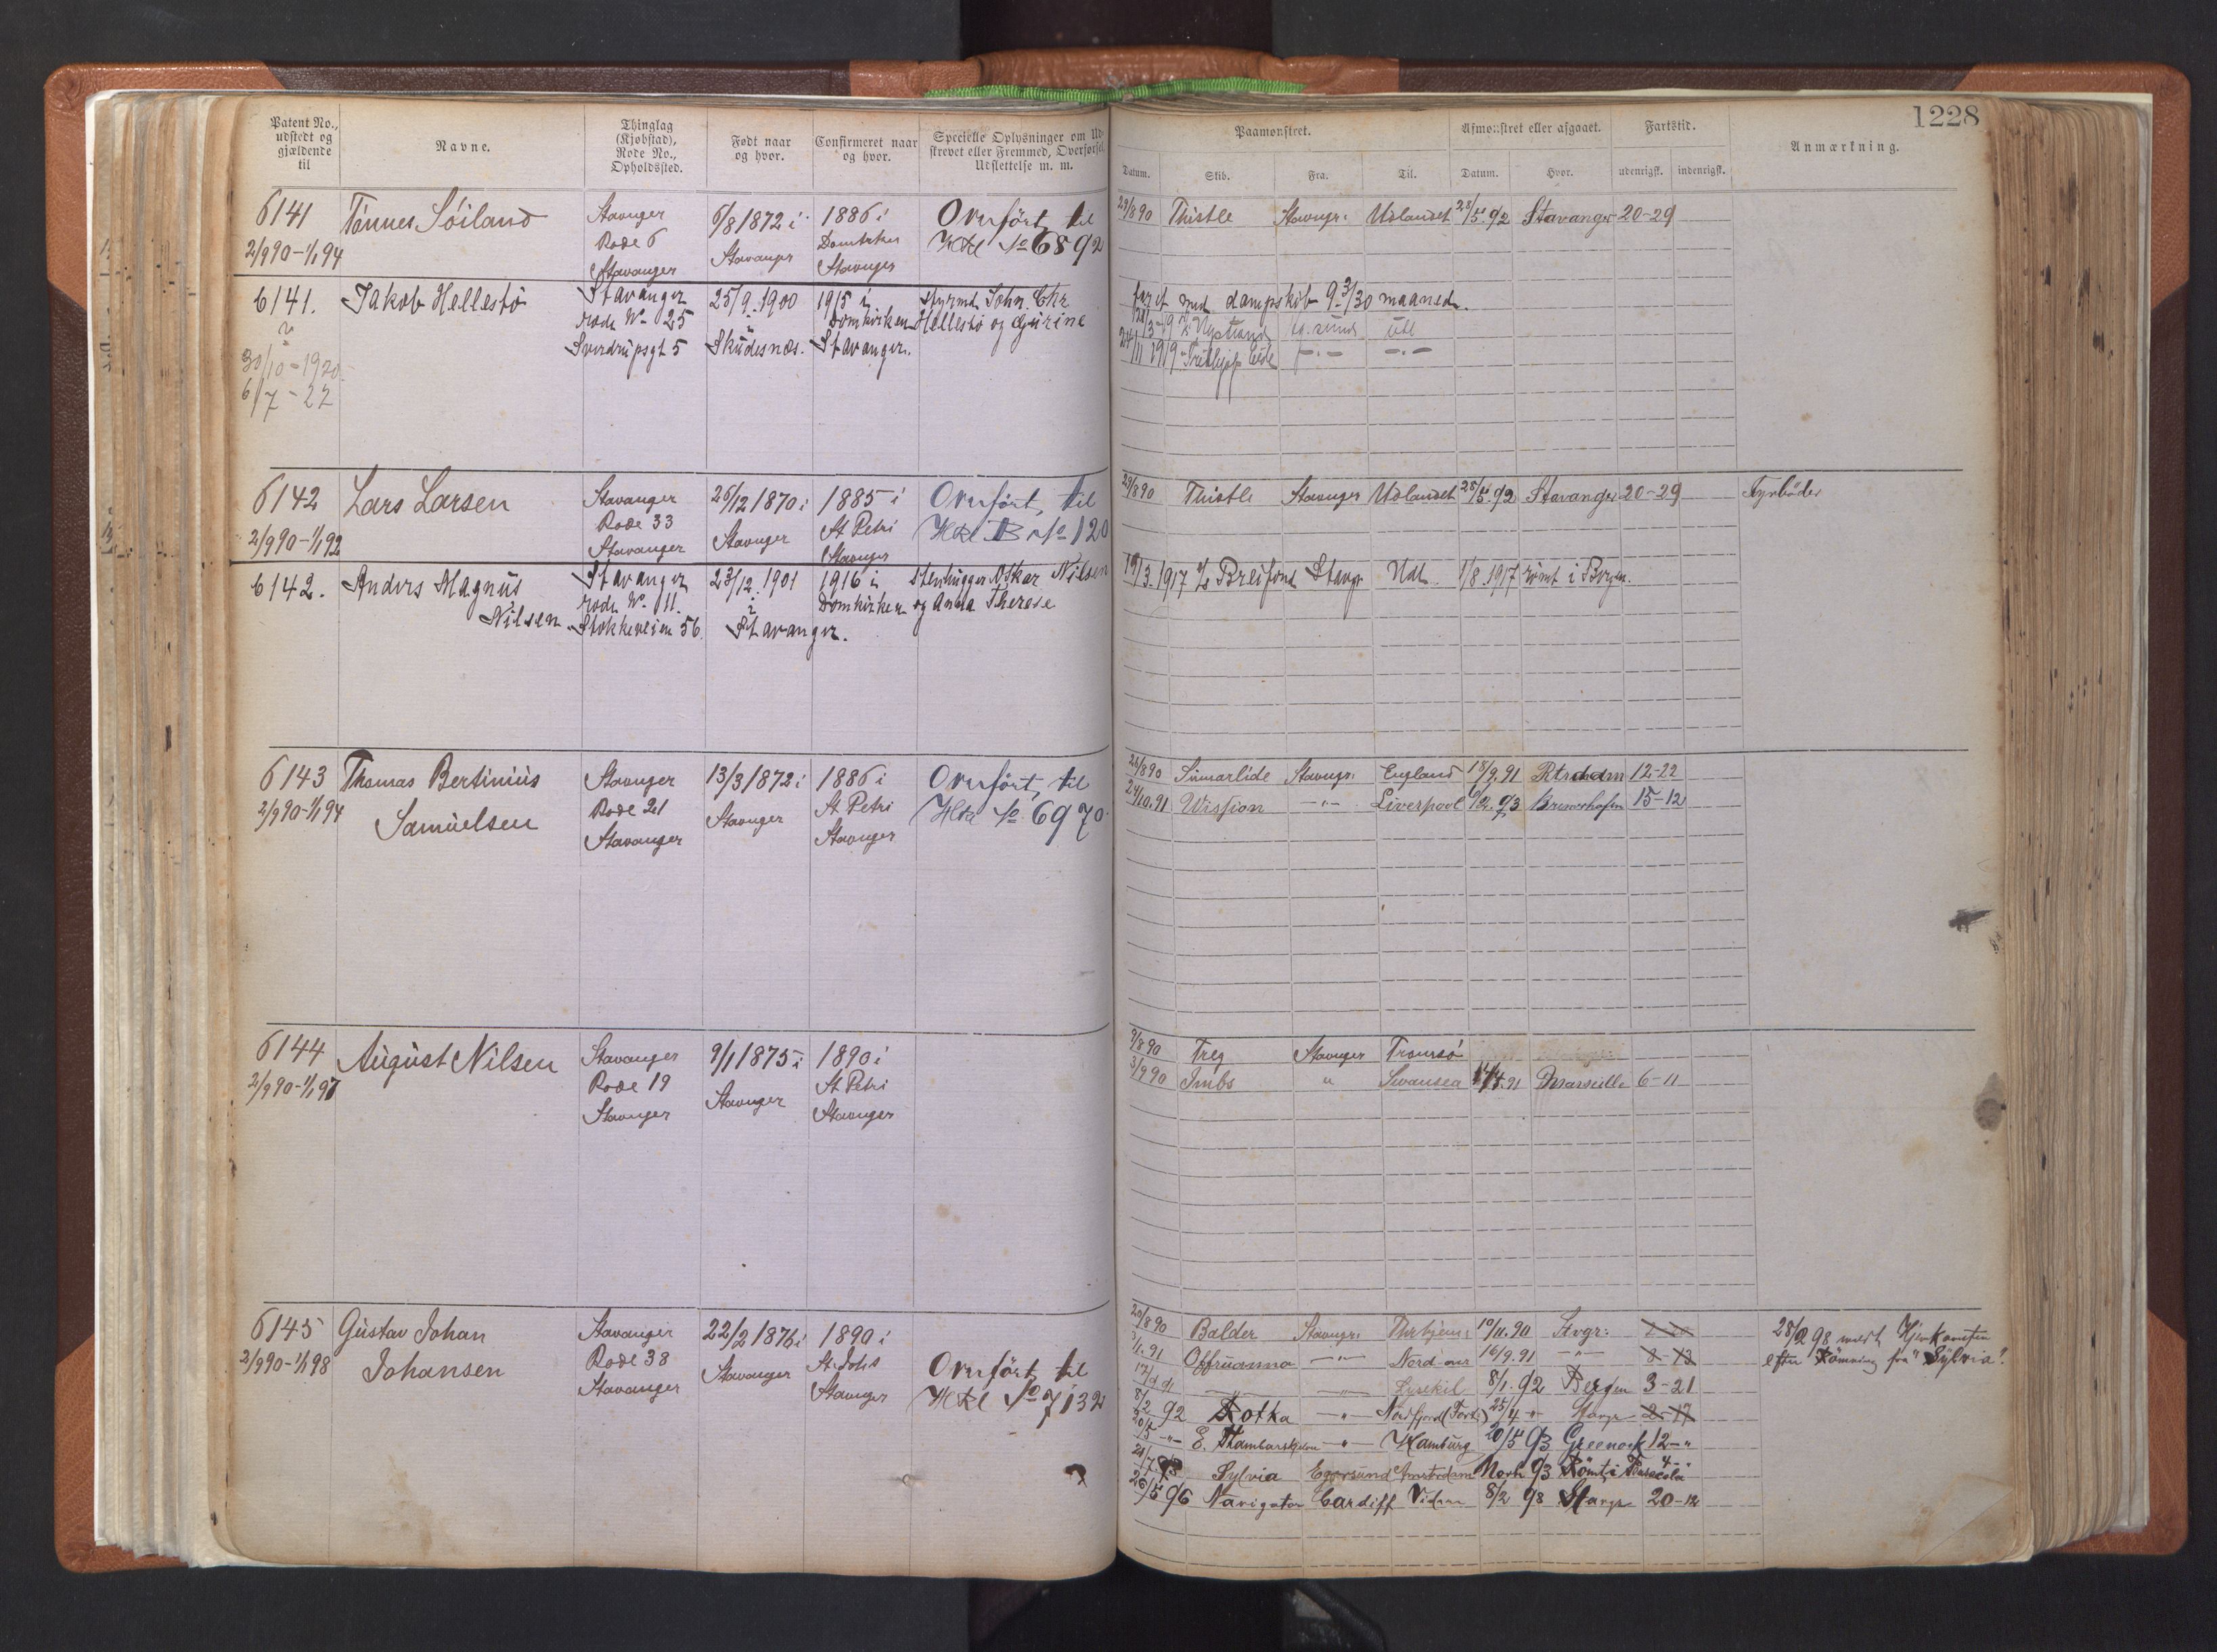 1228
Patent No., udstedt og gjældende til
Navne.
Thinglag (Kjøbstad), Rode No., Opholdssted.
Født naar og hvor.
Confirmeret naar og hvor.
Specielle Oplysninger om Ud-
skrevet eller Fremmed, Overførsel,
Udslettelse m. m.
Paamønstret.
Afmønstret eller afgaaet.
Fartstid.
Anmærkning.
Datum.
Skib.
Fra.
Til.
Datum.
Hvor.
udenrigsk.
indenrigsk.
6141 Tönnes Söiland Stavanger 6/8 1872 i 1886 i Overført til
2/9 90 - 1/1 94 Rode 6 Stavanger Domkirken No 6892
Stavanger Stavanger
29/8 90 Thistle Stavngr: Udlandet 28/5.92 Stavanger 20-29
6141. Jakob Hellestö Stavanger 25/9.1900 1915 i styrmd. John Chr
rode No 25 i Domkirken Hellestö og Gurine
Sverdrupsgt 5 Skudesnes. Stavanger.
30/10-1920
6/7-22
faret med dampskib 9-3/30 maaned.
6142 Lars Larsen Stavanger 26/12 1870 i 1885 i Overført til
2/9 90 - 1/1 92 Rode 33 Stavanger St Petri B No 120
Stavanger Stavanger
29/8 90 Thistle Stavnger Udlandet 28/5.92 Stavanger 20-29 Fyrböder
6142. Anders Magnus Stavanger 23/12.1901 1916 i Stenhugger Oskar Nilsen
Nilsen. rode No 11. i Domkirken og Anna Therese
Stokkeveien 56. Stavanger.
19/3.1917 Breifond Stavgr Udl. 1/8.1917 römt i Bergen.
6143 Thomas Bertinius Stavanger 13/3 1872 i 1886 i Overført til
2/9 90 - 1/1 94 Samuelsen Rode 21 Stavnger St Petri No 6970
Stavanger Stavnger
26/8 90 Sumarlide Stavngr: England 18/9.91 Rtrdam 12-22
24/10.91 Liverpool Bremerhafen 15-12
6144 August Nilsen Stavanger 9/1 1875 i 1890 i
2/9 90 - 1/1 97 Rode 19 Stavnger St Petri
Stavanger Stavanger
9/8 90 Treg Stavnger Tromsö
3/9 90 Imbs " Swansea Marseille 6-11
6145 Gustav Johan Stavanger 22/2 1876 i 1890 i
2/9 90 - 1/1 98 Johansen Rode 38 Stavanger St. Johs Overført til
Stavanger Stavnger No 7132
29/8 90 Balder Stavngr: 10/11.90 Stvgr:
16/9.91 8-13
Lysekil 8/1.92 Bergen 3-21
8/2 92 Rotka 25/4 Stavgr 2-17
20/5 Hamburg 20/5 93 Greenock 12-"
Sylvia Egersund Amsterdam 93 Römt i Pensacola
26/5 96 Navigator Cardiff 8/2 98 Stavgr 20-12
28/2 98 Hjemkomsten
efter Römning fra "Sylvia".